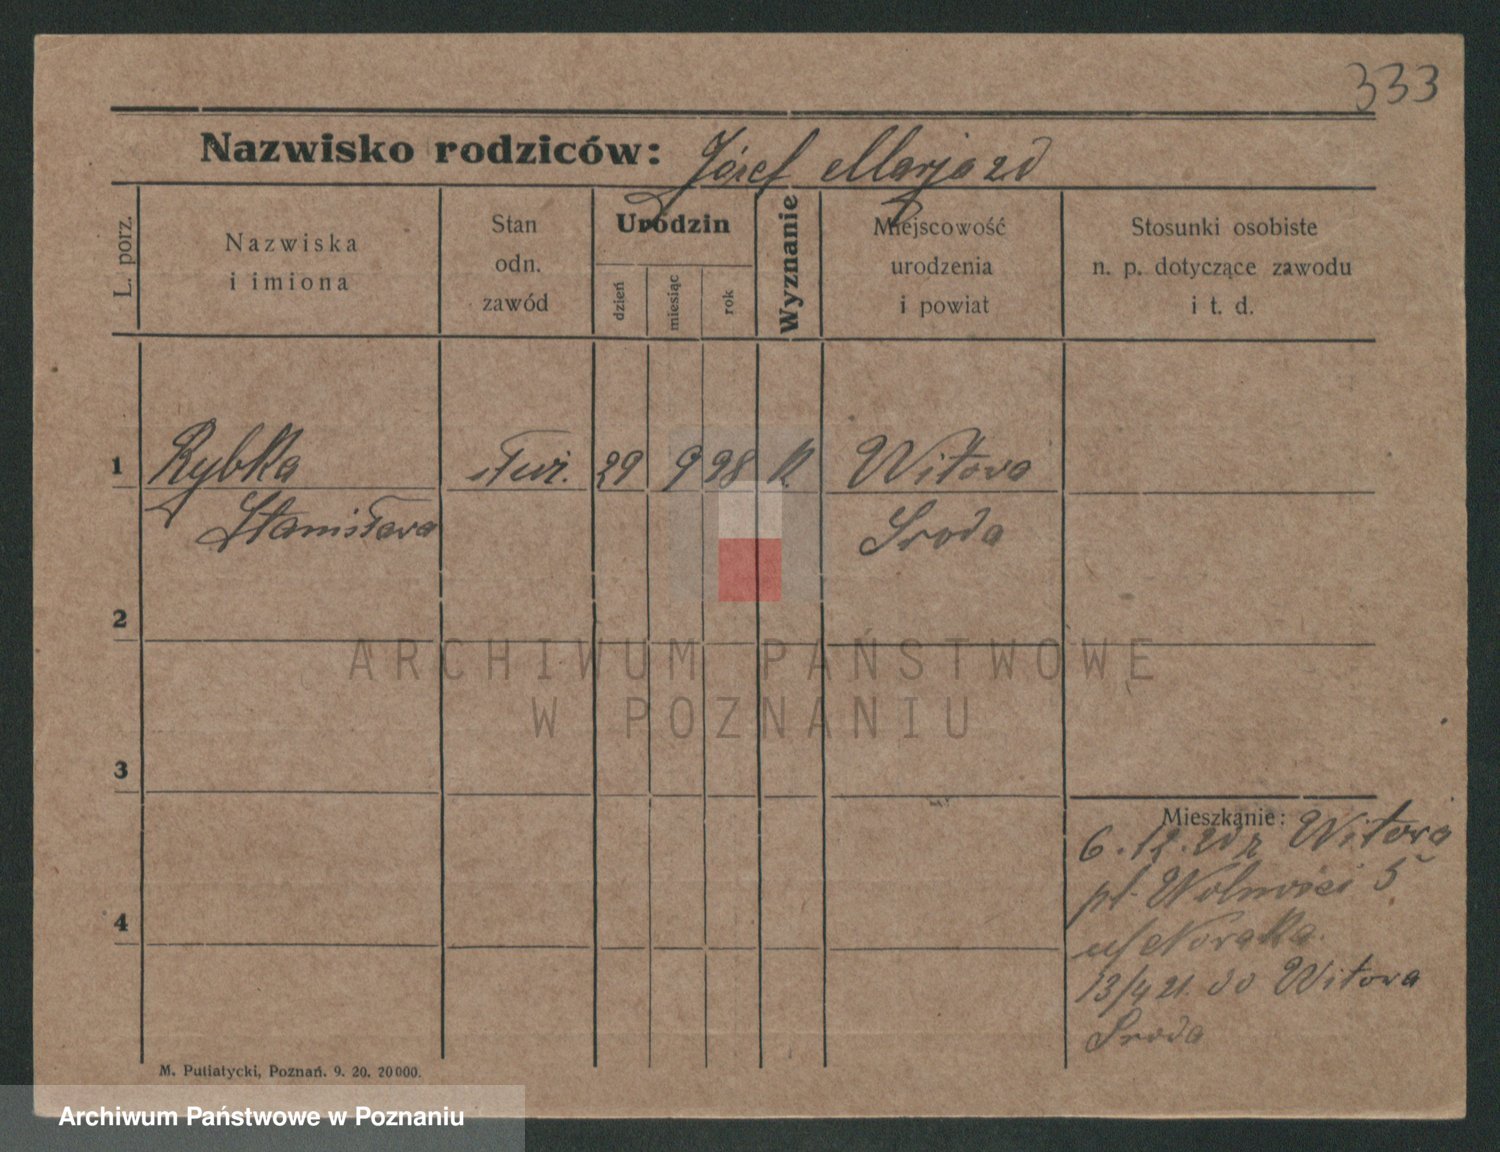 333
Nazwisko rodziców: Józef Marja zd
L. porz.
Nazwiska
i imiona
Stan
odn.
zawód
Urodzin
dzień
miesiąc
rok
Wyznanie
Miejscowość
urodzenia
i powiat
Stosunki osobiste
n. p. dotyczące zawodu
i t. d.
1 Rybka służ. 29 9 98 k. Witowa
Stanisława Sroda
2
ARCHIWUM PAŃSTWOWE
W POZNANIU
3
Mieszkanie:
6.12.20 z Witowa
pl. Wolności 5
u/ Nowaka
4
13/4 21. do Witowa
Sroda
M. Putiatycki, Poznań. 9. 20. 20000.
Archiwum Państwowe w Poznaniu